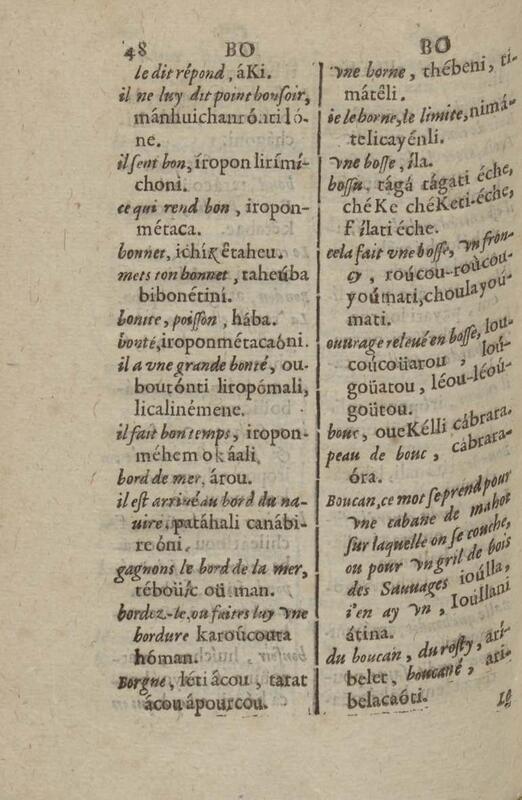 48 BO
le dit répond, áKi.
il ne luy dit point bonsoir,
mánhuichanrónti ló-
ne.
il sent bon, íropon lirími-
choni.
ce qui rend bon, iropon-
métaca.
bonnet, ichíĸêtaheu.
mets ton bonnet, taheúba
bibonétiní.
bonite, poisson, hába.
bonté, iroponmétacaóni.
il a vne grande bonté, ou-
boutónti liropómali,
licalinémene.
il fait bon temps, iropon-
méhem okáali
bord de mer, árou.
il est arriué au bord du na-
uire, patáhali canábi-
reóni.
gagnons le bord de la mer,
téboüic oü man.
bordez-le, ou faites luy vne
bordure karoúcouta
hóman.
Borgne, léti ácou, tarat
ácou ápourcou.
BO
vne borne, thébeni, ti-
mátêli.
ie le borne, le limite, nimá-
telicayénli.
vne bosse, íla.
bossu, tágá tágati éche,
chéKe chéKeti-éche,
f ílati éche.
cela fait vne bosse, vn fron-
cy, roúcou-roùcou-
yoúmati, choulayoú-
mati.
ouurage releué en bosse, lou-
coúcoüarou, loú-
goüatou, léou-léoú-
goütou.
bouc, oueKélli cábrara.
peau de bouc, cábrara-
óra.
Boucan, ce mot se prend pour
vne cabane de mahot
sur laquelle on se couche,
ou pour vn gril de bois
des Sauuages ioúlla,
i'en ay vn, Ioullani
átina.
du boucan, du rosty, ari-
belet, boucané, ari-
belacaóti.